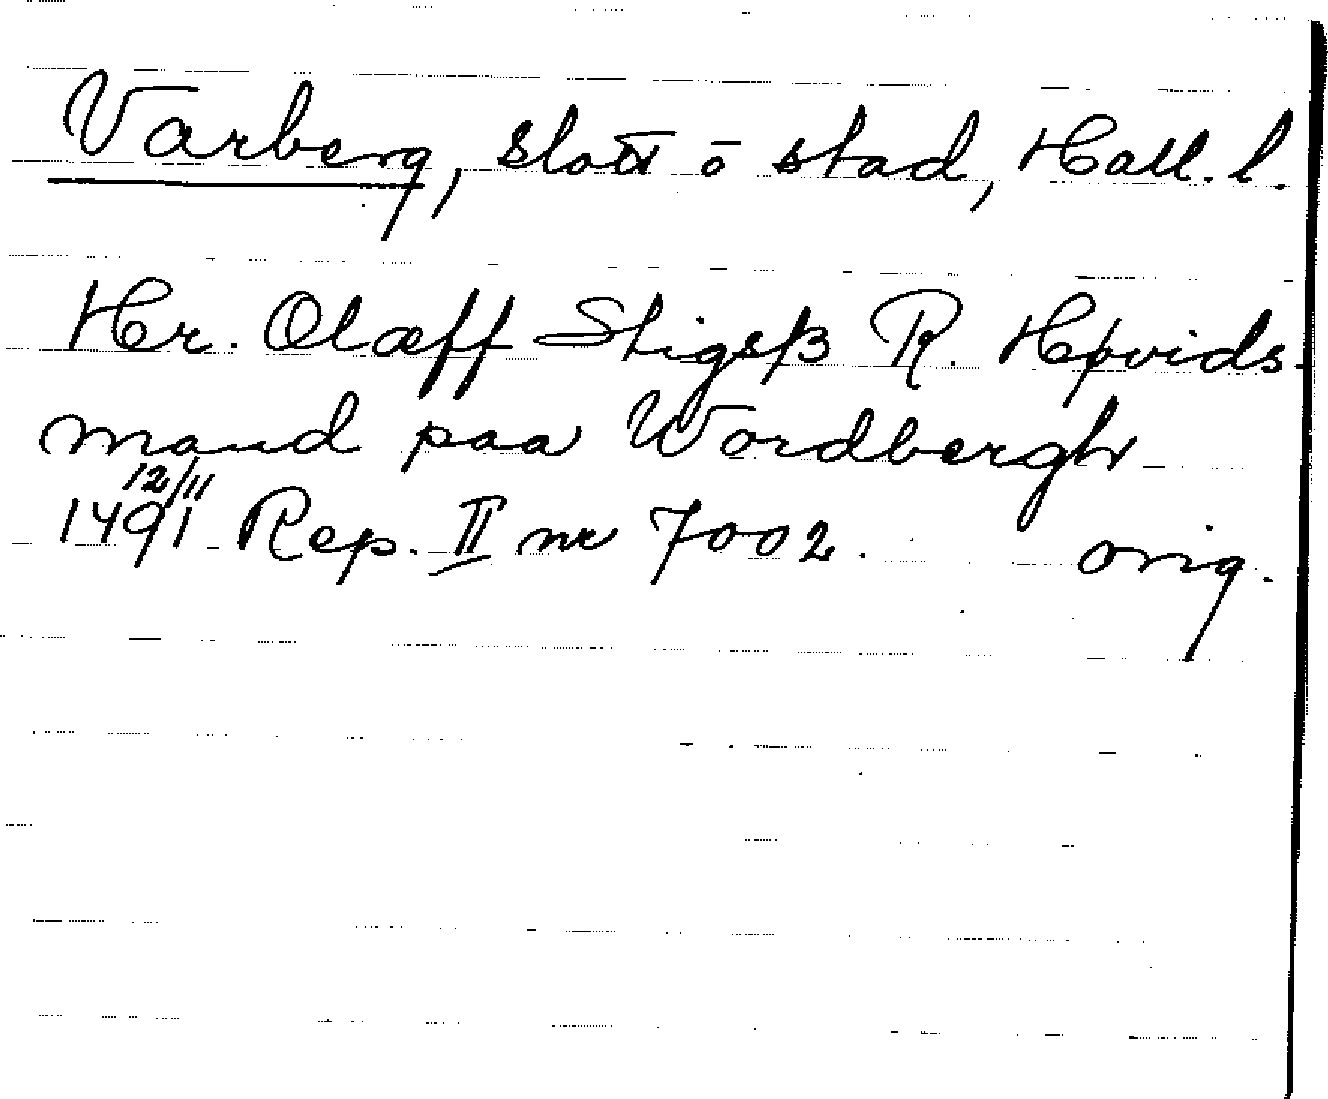 Varberg, slott ō stad, Hall. l.
Hr. Olæff Stigsß R. Høvids-
mand paa Wordbergh
12/11
1491 Rep. II nr 7002. orig.